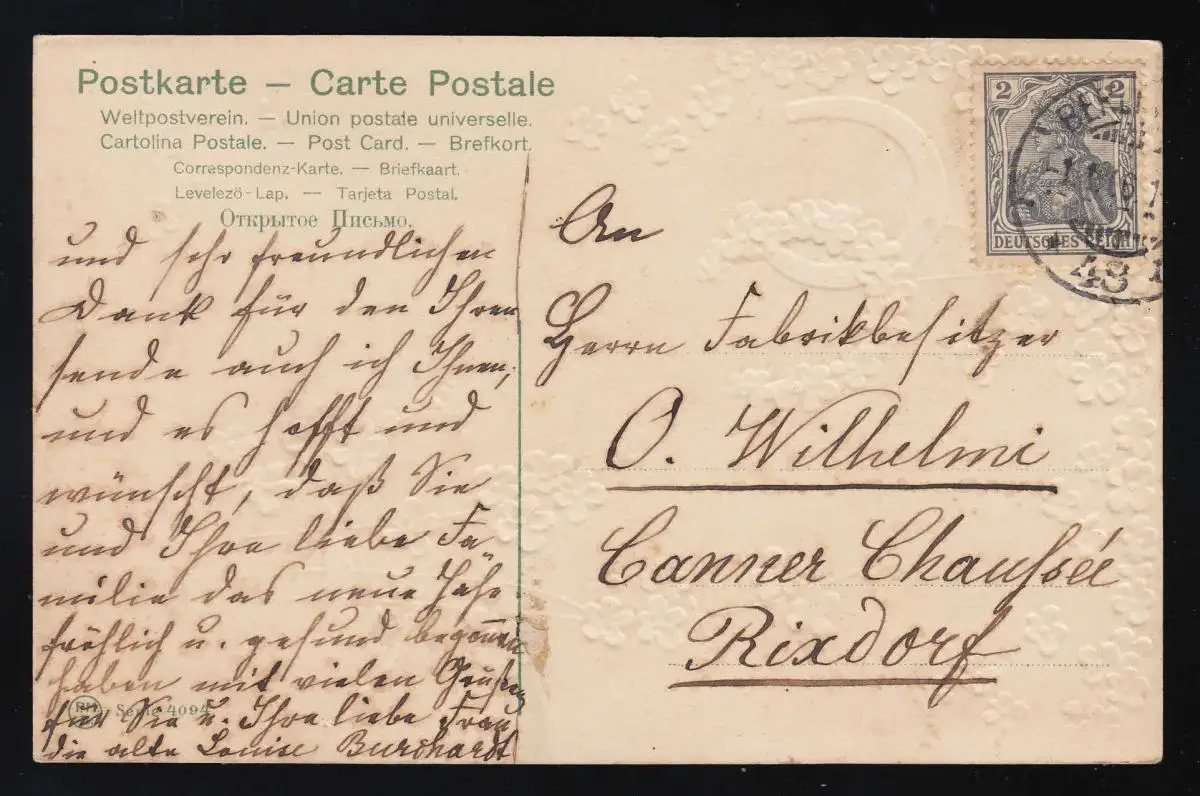 Postkarte – Carte Postale
Weltpostverein. — Union postale universelle.
Cartolina Postale. — Post Card. — Brefkort.
Correspondenz-Karte. — Briefkaart.
Levelező-Lap. — Tarjeta Postal.
Открытое Письмо.
und sehr freundlichen
Dank für den Ihren
sende auch ich Ihnen,
und es hofft und
wünscht, daß Sie
und Ihre liebe Fa
milie das neue Jahr
fröhlich u. gesund begonnen
haben mit vielen Grüßen
für Sie u. Ihre liebe Frau
die alte Louise Burchardt
Serie 4094
2 2
DEUTSCHES REICH
48
An
Herrn Fabrikbesitzer
O. Wilhelmi
Canner Chaussée
Rixdorf